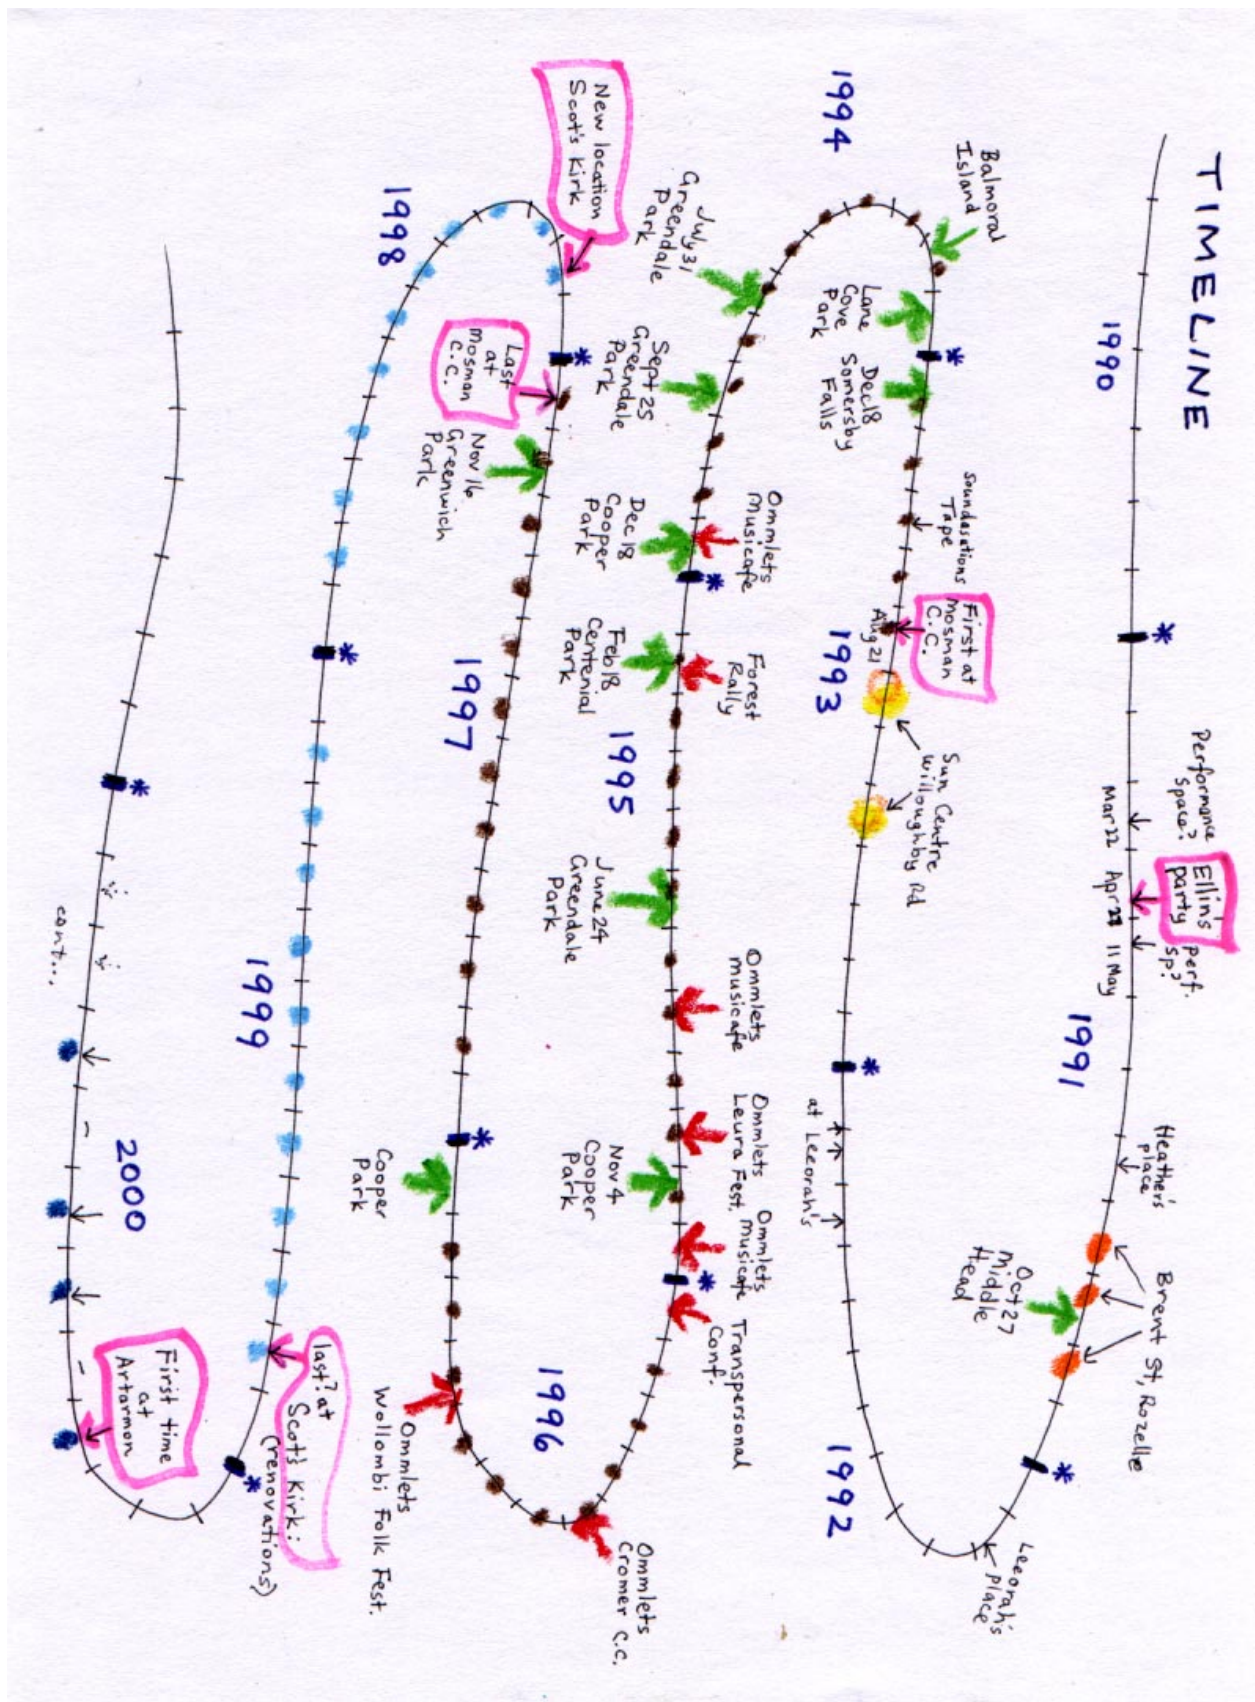 TIMELINE
1990
*
Performance
space?
Mar 22
Ellin's
party
Apr
perf.
sp?
11 May
1991
Heather's
place
Brent St, Rozelle
Oct 27
Middle
Head
*
Leeorah's
place
1992
at Leeorah's
*
Sun Centre
Willoughby Rd
1993
First at
Mosman
C.C.
Aug 21
Soundasations
Tape
Dec 18
Somersby
Falls
*
Lane
Cove
Park
Balmoral
Island
1994
July 31
Greendale
Park
Sept 25
Greendale
Park
Ommlets
Musicafe
Dec 18
Cooper
Park
*
Forest
Rally
Feb 18
Centenial
Park
1995
June 24
Greendale
Park
Ommlets
musicafe
Ommlets
Leura Fest.
Nov 4
Cooper
Park
Ommlets
musicafe
*
Transpersonal
Conf.
1996
Ommlets
Cromer C.C.
Ommlets
Wollombi Folk Fest.
Cooper
Park
*
1997
Nov 16
Greenwich
Park
Last
at
Mosman
C.C.
*
New location
Scot's Kirk
1998
*
1999
last? at
Scot's Kirk:
(renovations)
*
First time
at
Artarmon
2000
cont...
*